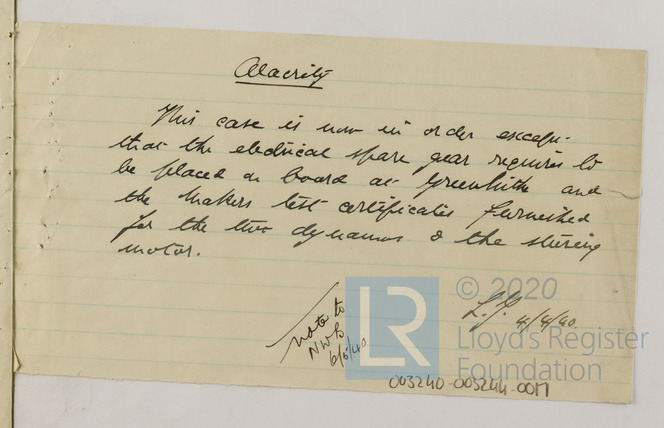 Alacrity
This case is now in order except
that the electrical spare gear requires to
be placed on board at Greenhithe and
the Makers test certificates furnished
for the two dynamos & the steering
motor.
L.J. 4/4/40
note to
NWB
6/5/40
LR
© 2020
Lloyd's Register
Foundation
003240-003244-0017